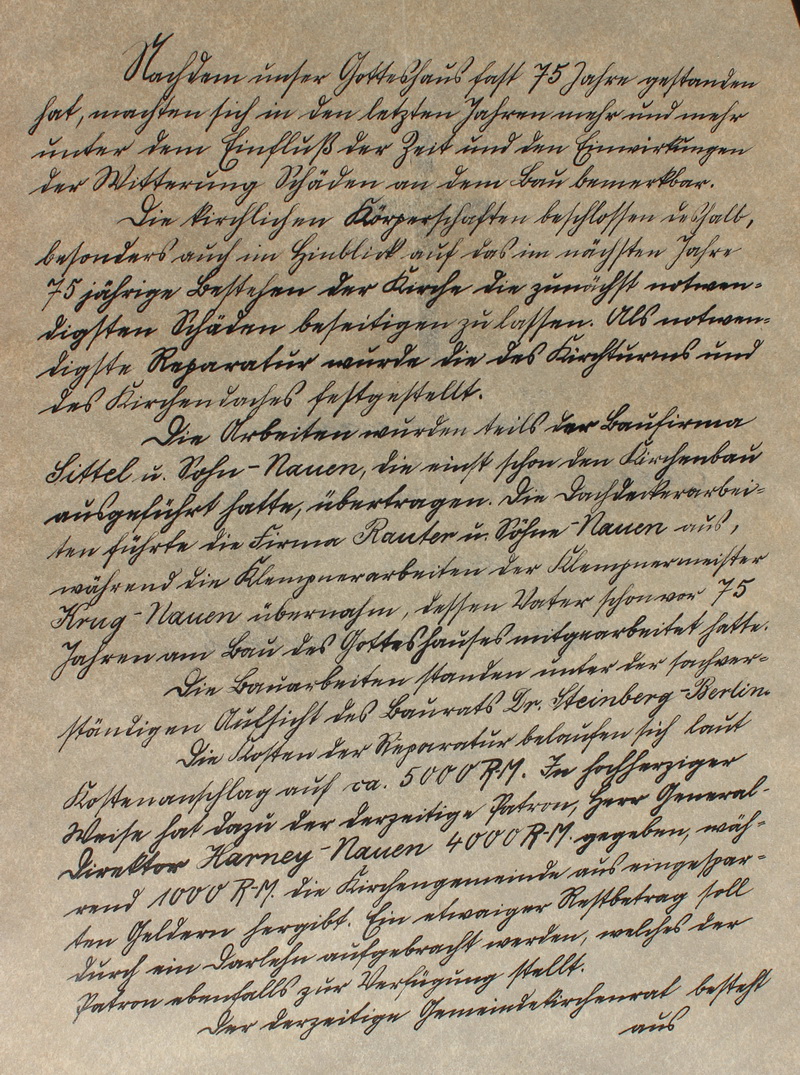 Nachdem unser Gotteshaus fast 75 Jahre gestanden
hat, machten sich in den letzten Jahren mehr und mehr
unter dem Einfluß der Zeit und den Einwirkungen
der Witterung Schäden an dem Bau bemerkbar.
Die kirchlichen Körperschaften beschlossen deshalb,
besonders auch im Hinblick auf das im nächsten Jahre
75 jährige Bestehen der Kirche die zunächst notwen-
digsten Schäden beseitigen zu lassen. Als notwen-
digste Reparatur wurde die des Kirchturms und
des Kirchendaches festgestellt.
Die Arbeiten wurden teils der Baufirma
Sittel u. Sohn-Nauen, die einst schon den Kirchenbau
ausgeführt hatte, übertragen. Die Dachdeckerarbei-
ten führte die Firma Rauter u. Söhne-Nauen aus,
während die Klempnerarbeiten der Klempnermeister
Krug-Nauen übernahm, dessen Vater schon vor 75
Jahren am Bau des Gotteshauses mitgearbeitet hatte.
Die Bauarbeiten standen unter der sachver-
ständigen Aufsicht des Baurats Dr. Steinberg-Berlin.
Die Kosten der Reparatur belaufen sich laut
Kostenanschlag auf ca. 5000 R-M. In hochherziger
Weise hat dazu der derzeitige Patron, Herr General-
direktor Harney-Nauen 4000 R-M. gegeben, wäh-
rend 1000 R-M. die Kirchengemeinde aus eingespar-
ten Geldern hergibt. Ein etwaiger Restbetrag soll
durch ein Darlehn aufgebracht werden, welches der
Patron ebenfalls zur Verfügung stellt.
Der derzeitige Gemeindekirchenrat besteht
aus